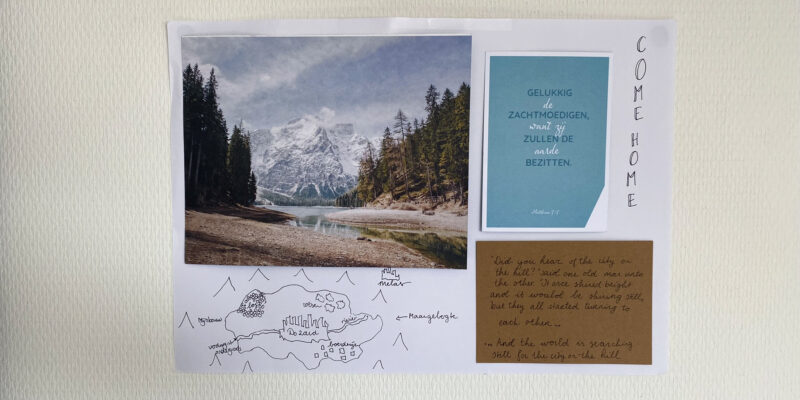 COME HOME
GELUKKIG
de
ZACHTMOEDIGEN,
want zij
ZULLEN DE
aarde
BEZITTEN.
"Did you hear of the city on
the hill?" said one old man unto
the other "It once shined bright
and it would be shining still,
but they all started turning to
each other...
... And the world is searching
still for the city on the hill
metas
Maagelegte
bos
Mijnbouw
De Laid
boerderij